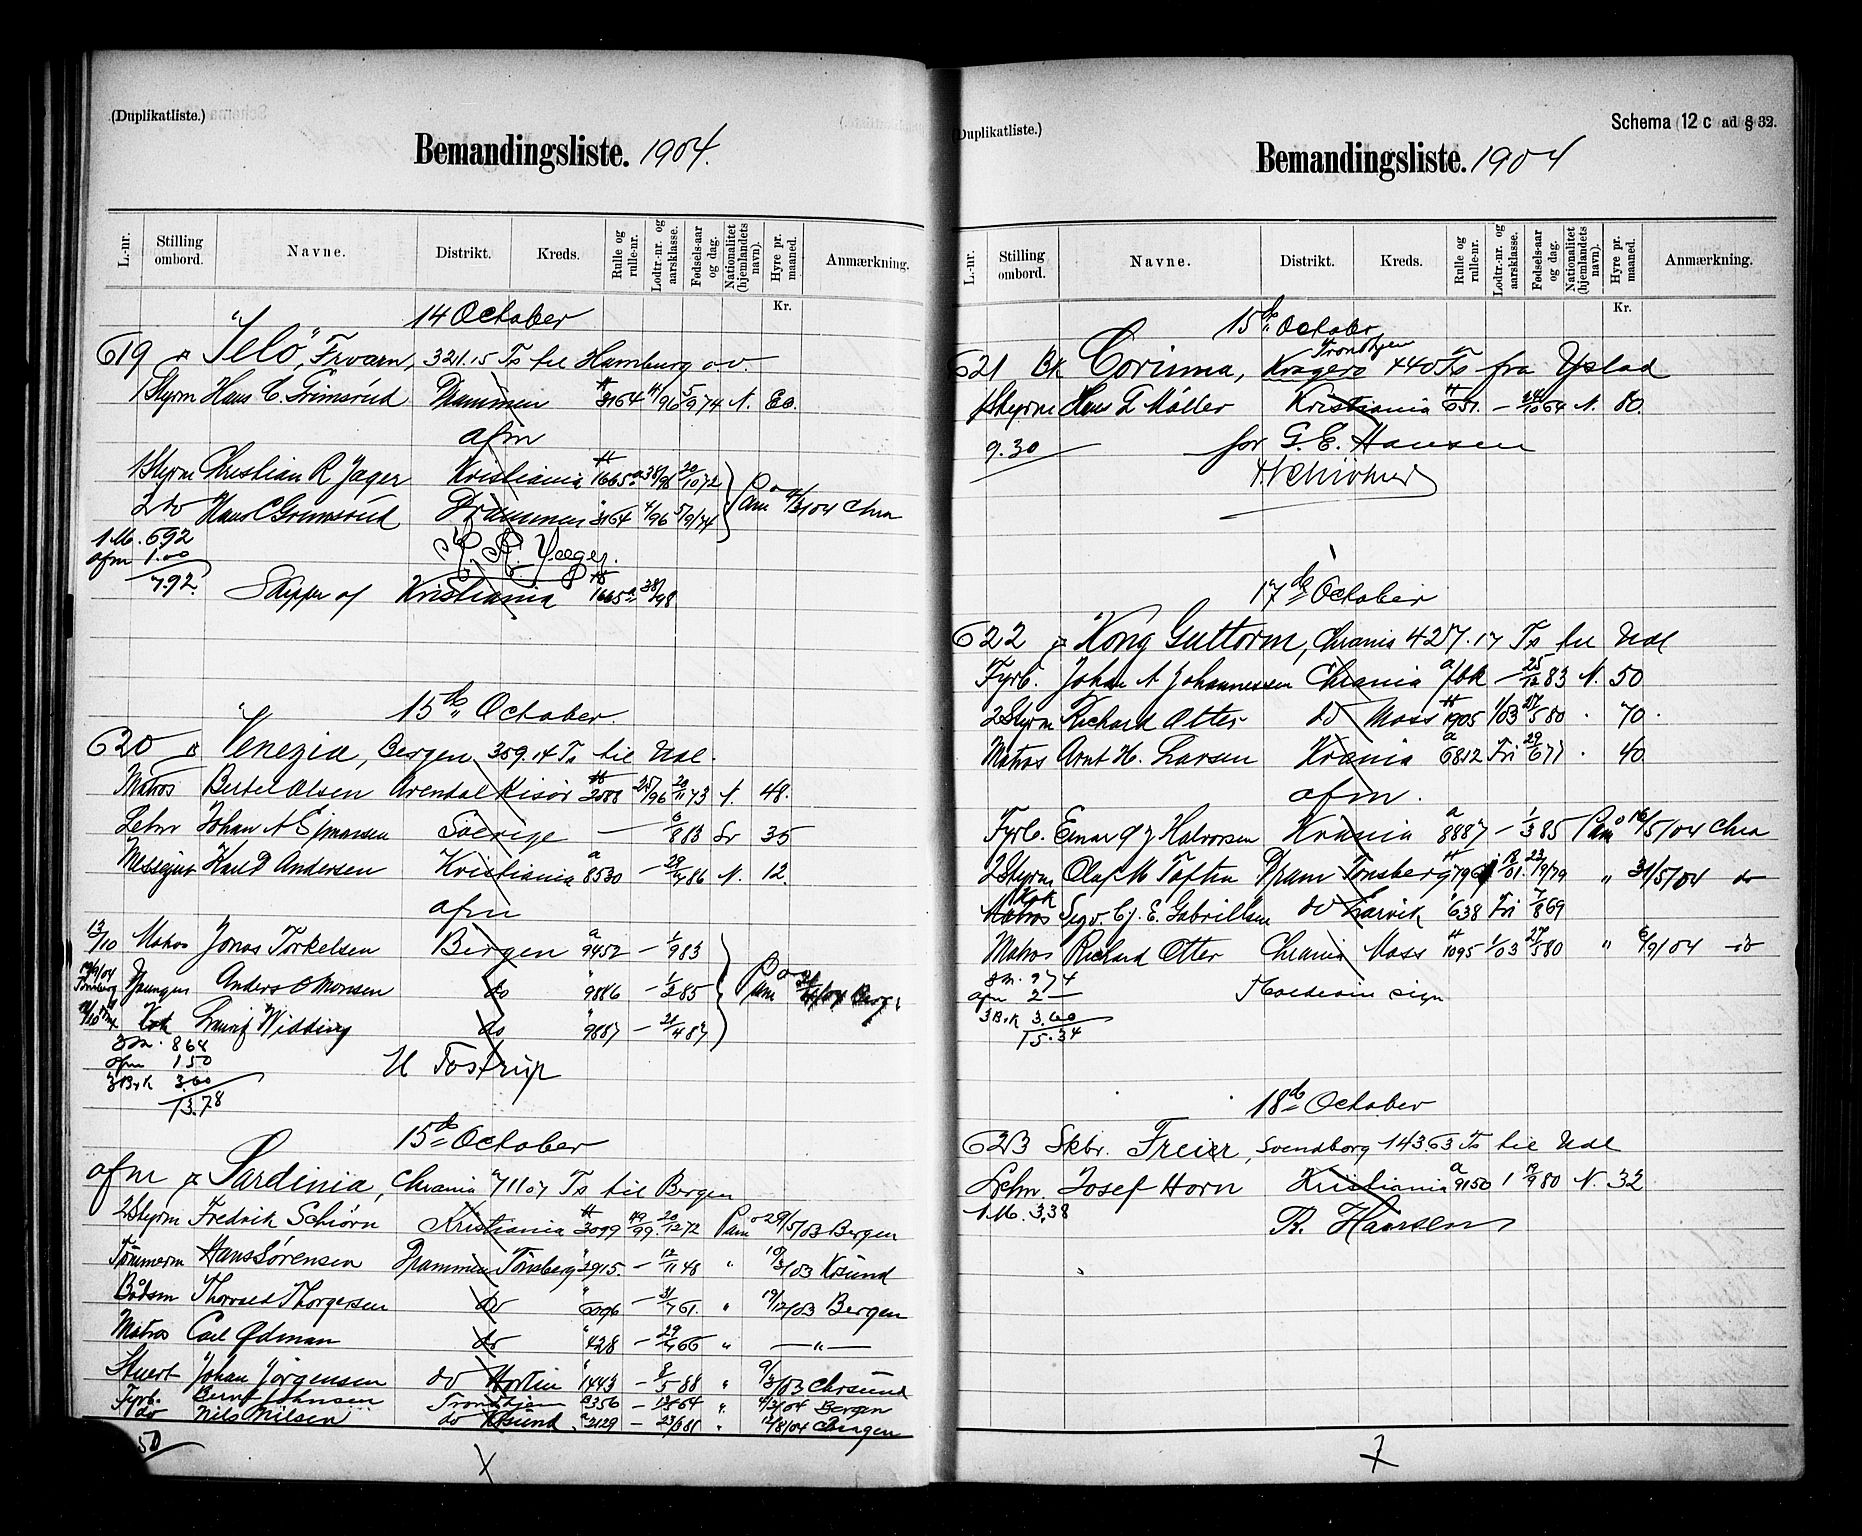 (Duplikatliste.)
Bemandingsliste. 1904.
L.-nr. Stilling ombord. Navne. Distrikt. Kreds. Rulle og rulle-nr. Lodtr.-nr. og aarsklasse. Fødsels-aar og dag. Nationalitet (hjemlandets navn). Hyre pr. maaned. Anmærkning.
Kr.
14 October
619 321.15 Ts til Hamburg
1 Styrm Hans C. Grimsrud Drammen 3164 4/96 5/9 74 N.
afm
1 Styrm Christian R Jager Kristiania 1665 38/98 20/10 72
2 do Hans C Grimsrud Drammen 3164 4/96 5/9/74
1 M. 6.92
afm 1.00
7.92
Skipper af Kristiania 1665 38/98
15de October
620 Venezia, Bergen 359.14 Ts til Udl.
Matros Bertel Olsen Arendal Risør 25/96 20/11 73 N. 48.
Johan A Sverige — 6/8 83 Sv 35
Karl D Andersen Kristiania a 8530 — 86 N. 12.
afm
13/10 Matros Jonas Torkelsen Bergen a 9452 — 1/9 83
Anders O Monsen do " 9886 — 1/2 85
Kok Widding do " 9887 — 4 87
3 M. 8.64
afm 1.50
3 B.K 3.60
13.78
H Tostrup
15de October
afm Sardinia, Chrania 711 07 Ts til Bergen
2 Styrm Fredrik Schiørn Kristiania 3099 49/99 20/12 72 Paam 29/5/03 Bergen
Tømmerm Hans Sørensen Drammen Tønsberg 2915. — 12/11 48 " Ksund
Baadsm Thorvald Thorgersen do " 6096 — 31/7 61. " Bergen
Matros Carl Ødman do " 428 — 29 66 " — " —
Stuert Johan Jørgensen do Horten " 1443 — 8/5 88 " 9/3/03 Chrsund
Fyrb. Bernt Johnsen Trondhjem 356 — 64 " Bergen
do Nils Nilsen do Ksund a 2129 — 81 " 12/8/04 Bergen
50
(Duplikatliste.)
Schema 12 c ad § 32.
Bemandingsliste. 1904
L.-nr. Stilling ombord. Navne. Distrikt. Kreds. Rulle og rulle-nr. Lodtr.-nr. og aarsklasse. Fødsels-aar og dag. Nationalitet (hjemlandets navn). Hyre pr. maaned. Anmærkning.
Kr.
15de October
Trondhjem
621 Bk Corinna, Kragerø 440 Ts fra Ystad
1 Styrm Hans Møller Kristiania 651. — 64 N. 80.
9.30 for G. E. Hansen
17de October
622 Kong Guttorm, Chrania 427.17 Ts til Udl
Fyrb. Johan A Johannessen Chrania a — 25/12 83 N. 50
2 Styrm Richard Otter do Moss 1905 1/03 27/5 80 . 70.
Matros Arnt H. Larsen Krania a 6812 Fri 29/6 71 . 40
afm.
Fyrb. Einar Halvorsen Krania a 8887 — 1/3 85 Paam 16/5/04 Chra
2 Styrm Olaf M Toften Dram Tønsberg 01. 23/9/79 " 31/5/04 do
Kok
Matros Sigv. E. Gabrielsen do Larvik 638 Fri 7/8 69
Matros Richard Otter Chrania Moss 1095 1/03 27/5 80 " 6/9/04 do
8 M. 9.74
afm 2 —
3 B.K 3.60
15.34
sign
18de October
623 Skbr. Freier, Svendborg 143.63 Ts til Udl
Josef Horn Kristiania a 9150 1 80 N. 32
1 M. 3.38
R. Hansen
7